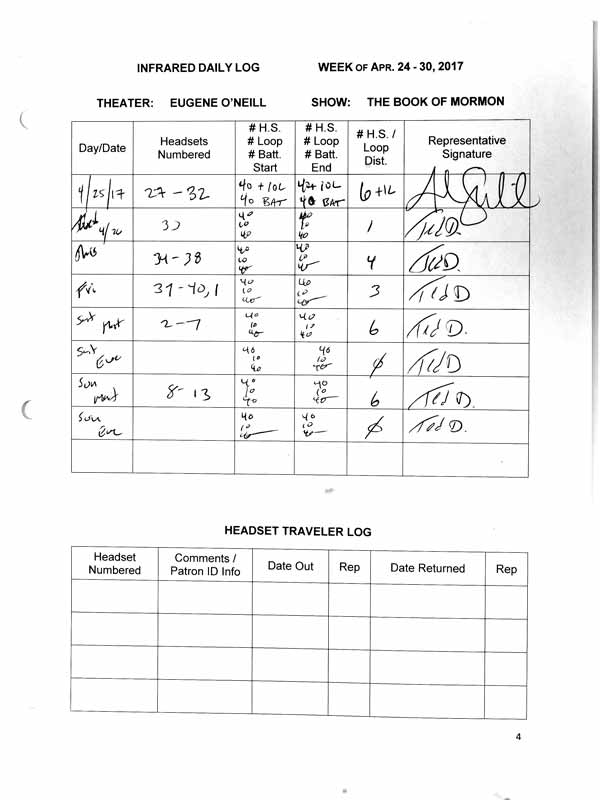 INFRARED DAILY LOG WEEK OF APR. 24 - 30, 2017
THEATER: EUGENE O'NEILL SHOW: THE BOOK OF MORMON
Day/Date Headsets Numbered # H.S. # Loop # Batt. Start # H.S. # Loop # Batt. End # H.S. / Loop Dist. Representative Signature
4/25/17 27 - 32 40 + 10L 40 BAT 40 BAT 6 + 1L
4/26 33 40 10 40 40 10 40 1 Ted D.
34 - 38 40 10 40 40 10 40 4 Ted D.
Fri 40 10 40 40 10 40 3 Ted D
Sat Mat 2 - 7 40 10 40 40 10 40 6 Ted D.
Sat Eve 40 10 40 40 10 40 ∅ Ted D
Sun Mat 8 - 13 40 10 40 40 10 40 6 Ted D.
Sun Eve 40 10 40 40 10 40 ∅ Ted D.
HEADSET TRAVELER LOG
Headset Numbered Comments / Patron ID Info Date Out Rep Date Returned Rep
4